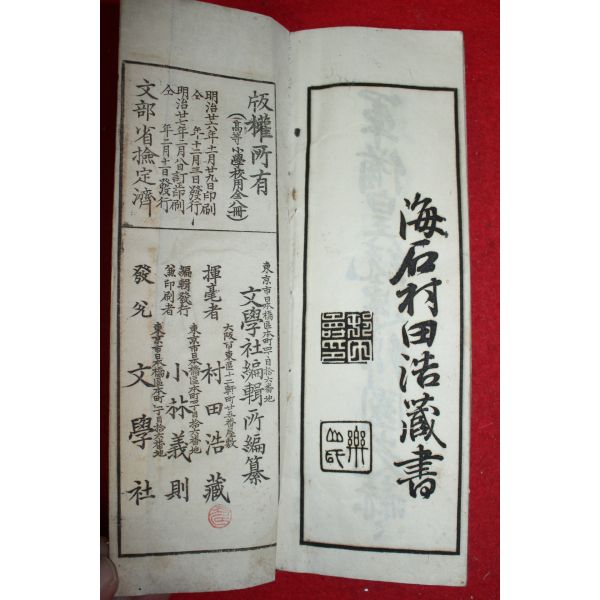 海石村田浩蔵書
版權所有
(高等小學校用全八冊)
明治廿六年十一月廿九日印刷
仝年十二月三日發行
明治廿七年二月八日訂正印刷
仝年二月十一日發行
文部省檢定濟
東京市日本橋區本町四丁目拾六番地
文學社編輯所編纂
大阪市東區十二軒町廿五番屋敷
揮毫者 村田浩蔵
東京市日本橋區本町四丁目拾六番地
編輯發行兼印刷者 小林義則
東京市日本橋區本町四丁目拾六番地
發兌 文學社